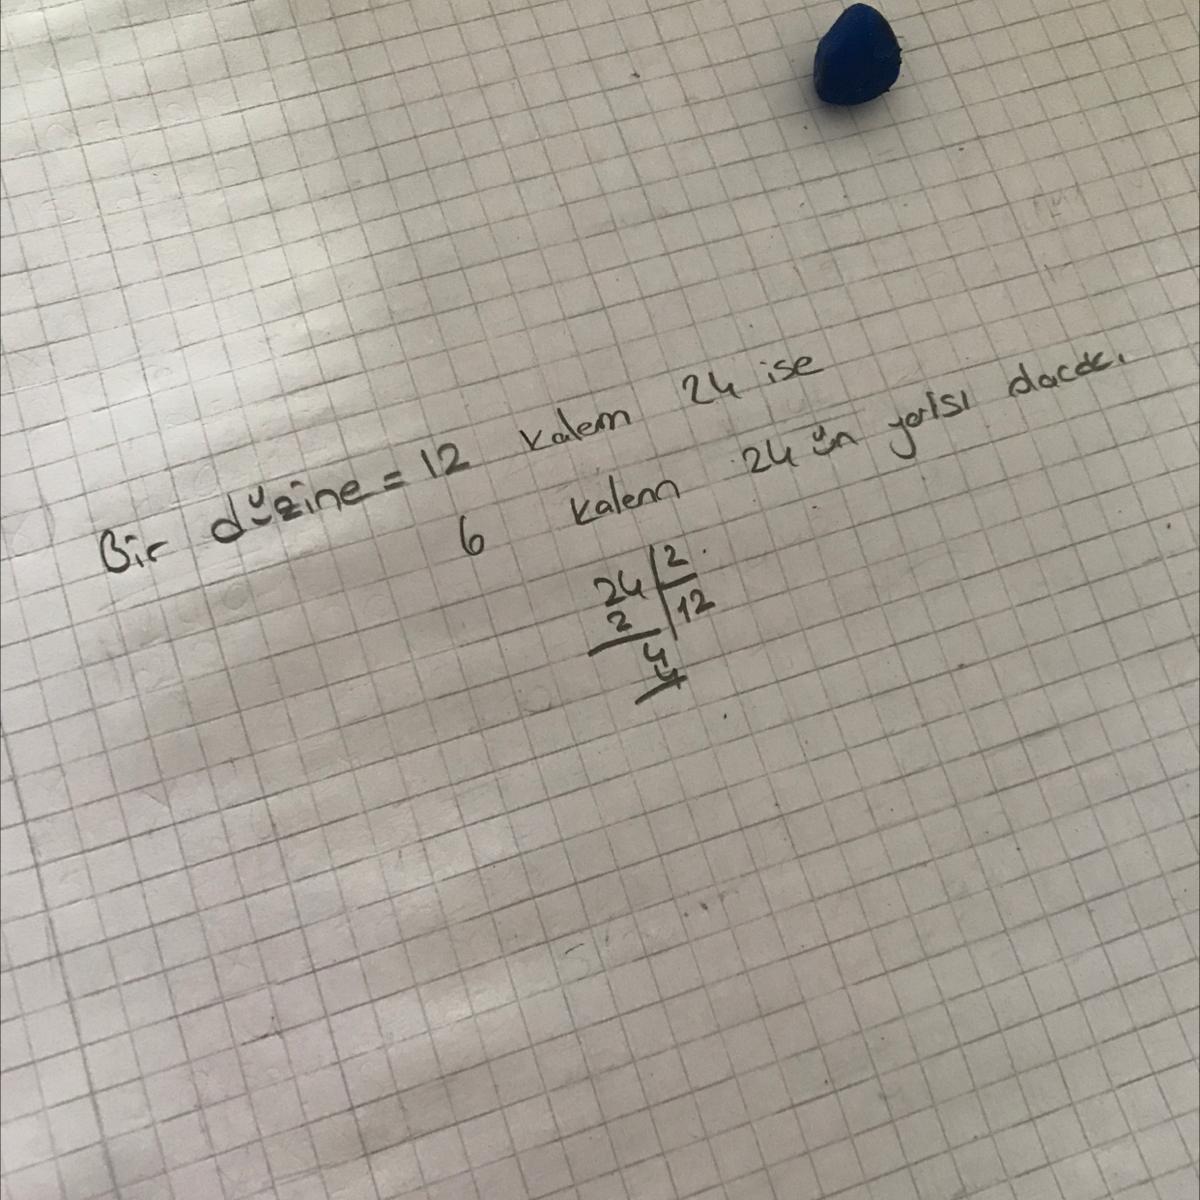 Bir düzine = 12 kalem 24 ise
6 kalem 24 ün yarısı
24 2
2 12
4
4